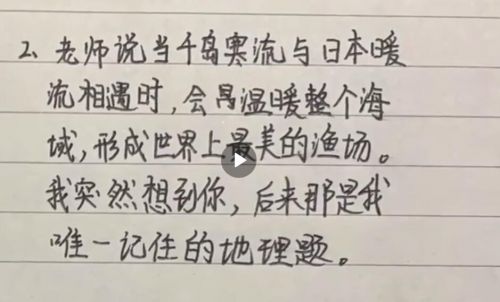 2、老师说当千岛寒流与日本暖
流相遇时，会温暖整个海
域，形成世界上最美的渔场。
我突然想到你，后来那是我
唯一记住的地理题。